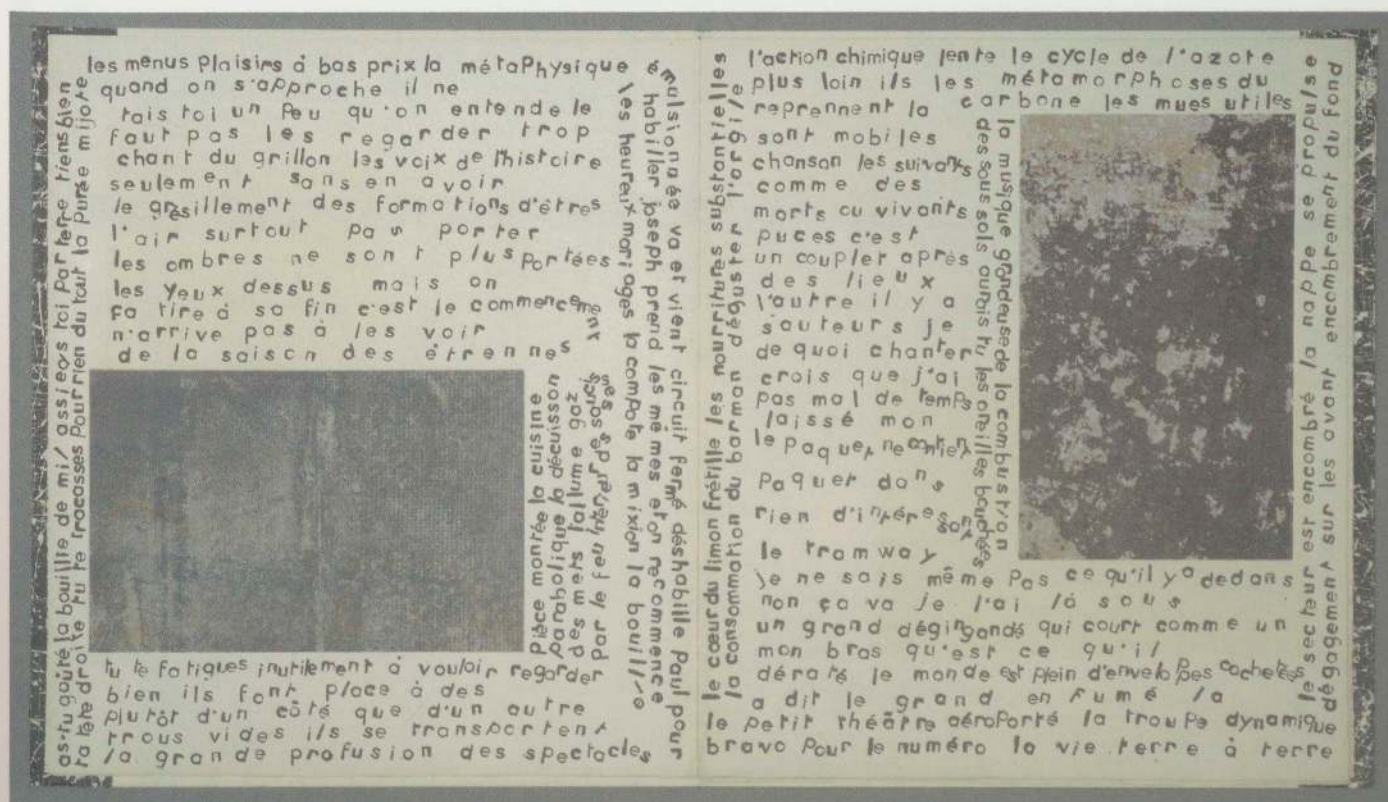 as-tu goûté la bouille de mil assieds toi par terre tiens bien
ta tête droite tu te tracasses pour rien du tout la purée mijote
les menus plaisirs à bas prix la métaphysique
quand on s'approche il ne
tais toi un peu qu'on entende le
faut pas les regarder trop
chant du grillon les voix de l'histoire
seulement sans en avoir
le grésillement des formations d'êtres
l'air surtout pas porter
les ombres ne sont plus portées
les yeux dessus mais on
ça tire à sa fin c'est le commencement
n'arrive pas à les voir
de la saison des étrennes
pièce montée la cuisine
parabolique la décuisson
des mets j'allume gaz
par le feu
tu te fatigues inutilement à vouloir regarder
bien ils font place à des
plutôt d'un côté que d'un autre
trous vides ils se transportent
la grande profusion des spectacles
émulsionnée va et vient circuit fermé déshabille Paul pour
habiller joseph prend les mêmes et on recommence
les heureux mariages la compote la mixion la bouillie
le cœur du limon frétille les nourritures substantielles
la consommation du barman déguster l'argile
l'action chimique lente le cycle de l'azote
plus loin ils les métamorphoses du
reprennent la carbone les mues utiles
sont mobiles
chanson les suivants
comme des
morts ou vivants
puces c'est
un couplet après
des lieux
l'autre il y a
sauteurs je
de quoi chanter
crois que j'ai
pas mal de temps
laissé mon
le paquet ne contient
paquet dans
rien d'intéressant
le tramway
je ne sais même pas ce qu'il y a dedans
non ça va je l'ai là sous
un grand dégingandé qui court comme un
mon bras qu'est ce qu'il
dératé le monde est plein d'enveloppes cachetées
a dit le grand en fumé la
le petit théâtre aéroporté la troupe dynamique
bravo pour le numéro la vie terre à terre
la musique grandeuse de la combustion
des sous sols aurais tu les oreilles bouchées
le secteur est encombré la nappe se propulse
dégagement sur les avant encombrement du fond